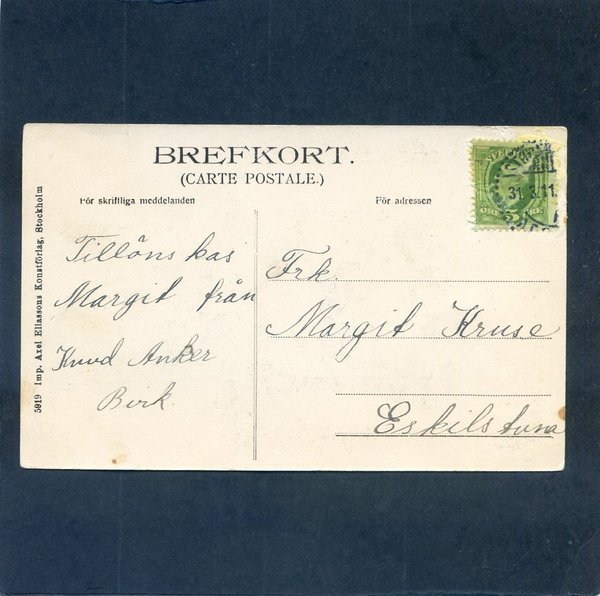 BREFKORT.
(CARTE POSTALE.)
För skriftliga meddelanden
För adressen
Tillöns kas
Margit från
Knud Anker
Birk.
Frk.
Margit Kruse
Eskilstuna
5919 Imp. Axel Eliassons Konstförlag, Stockholm
ÖRE 5 ÖRE
31 3 11